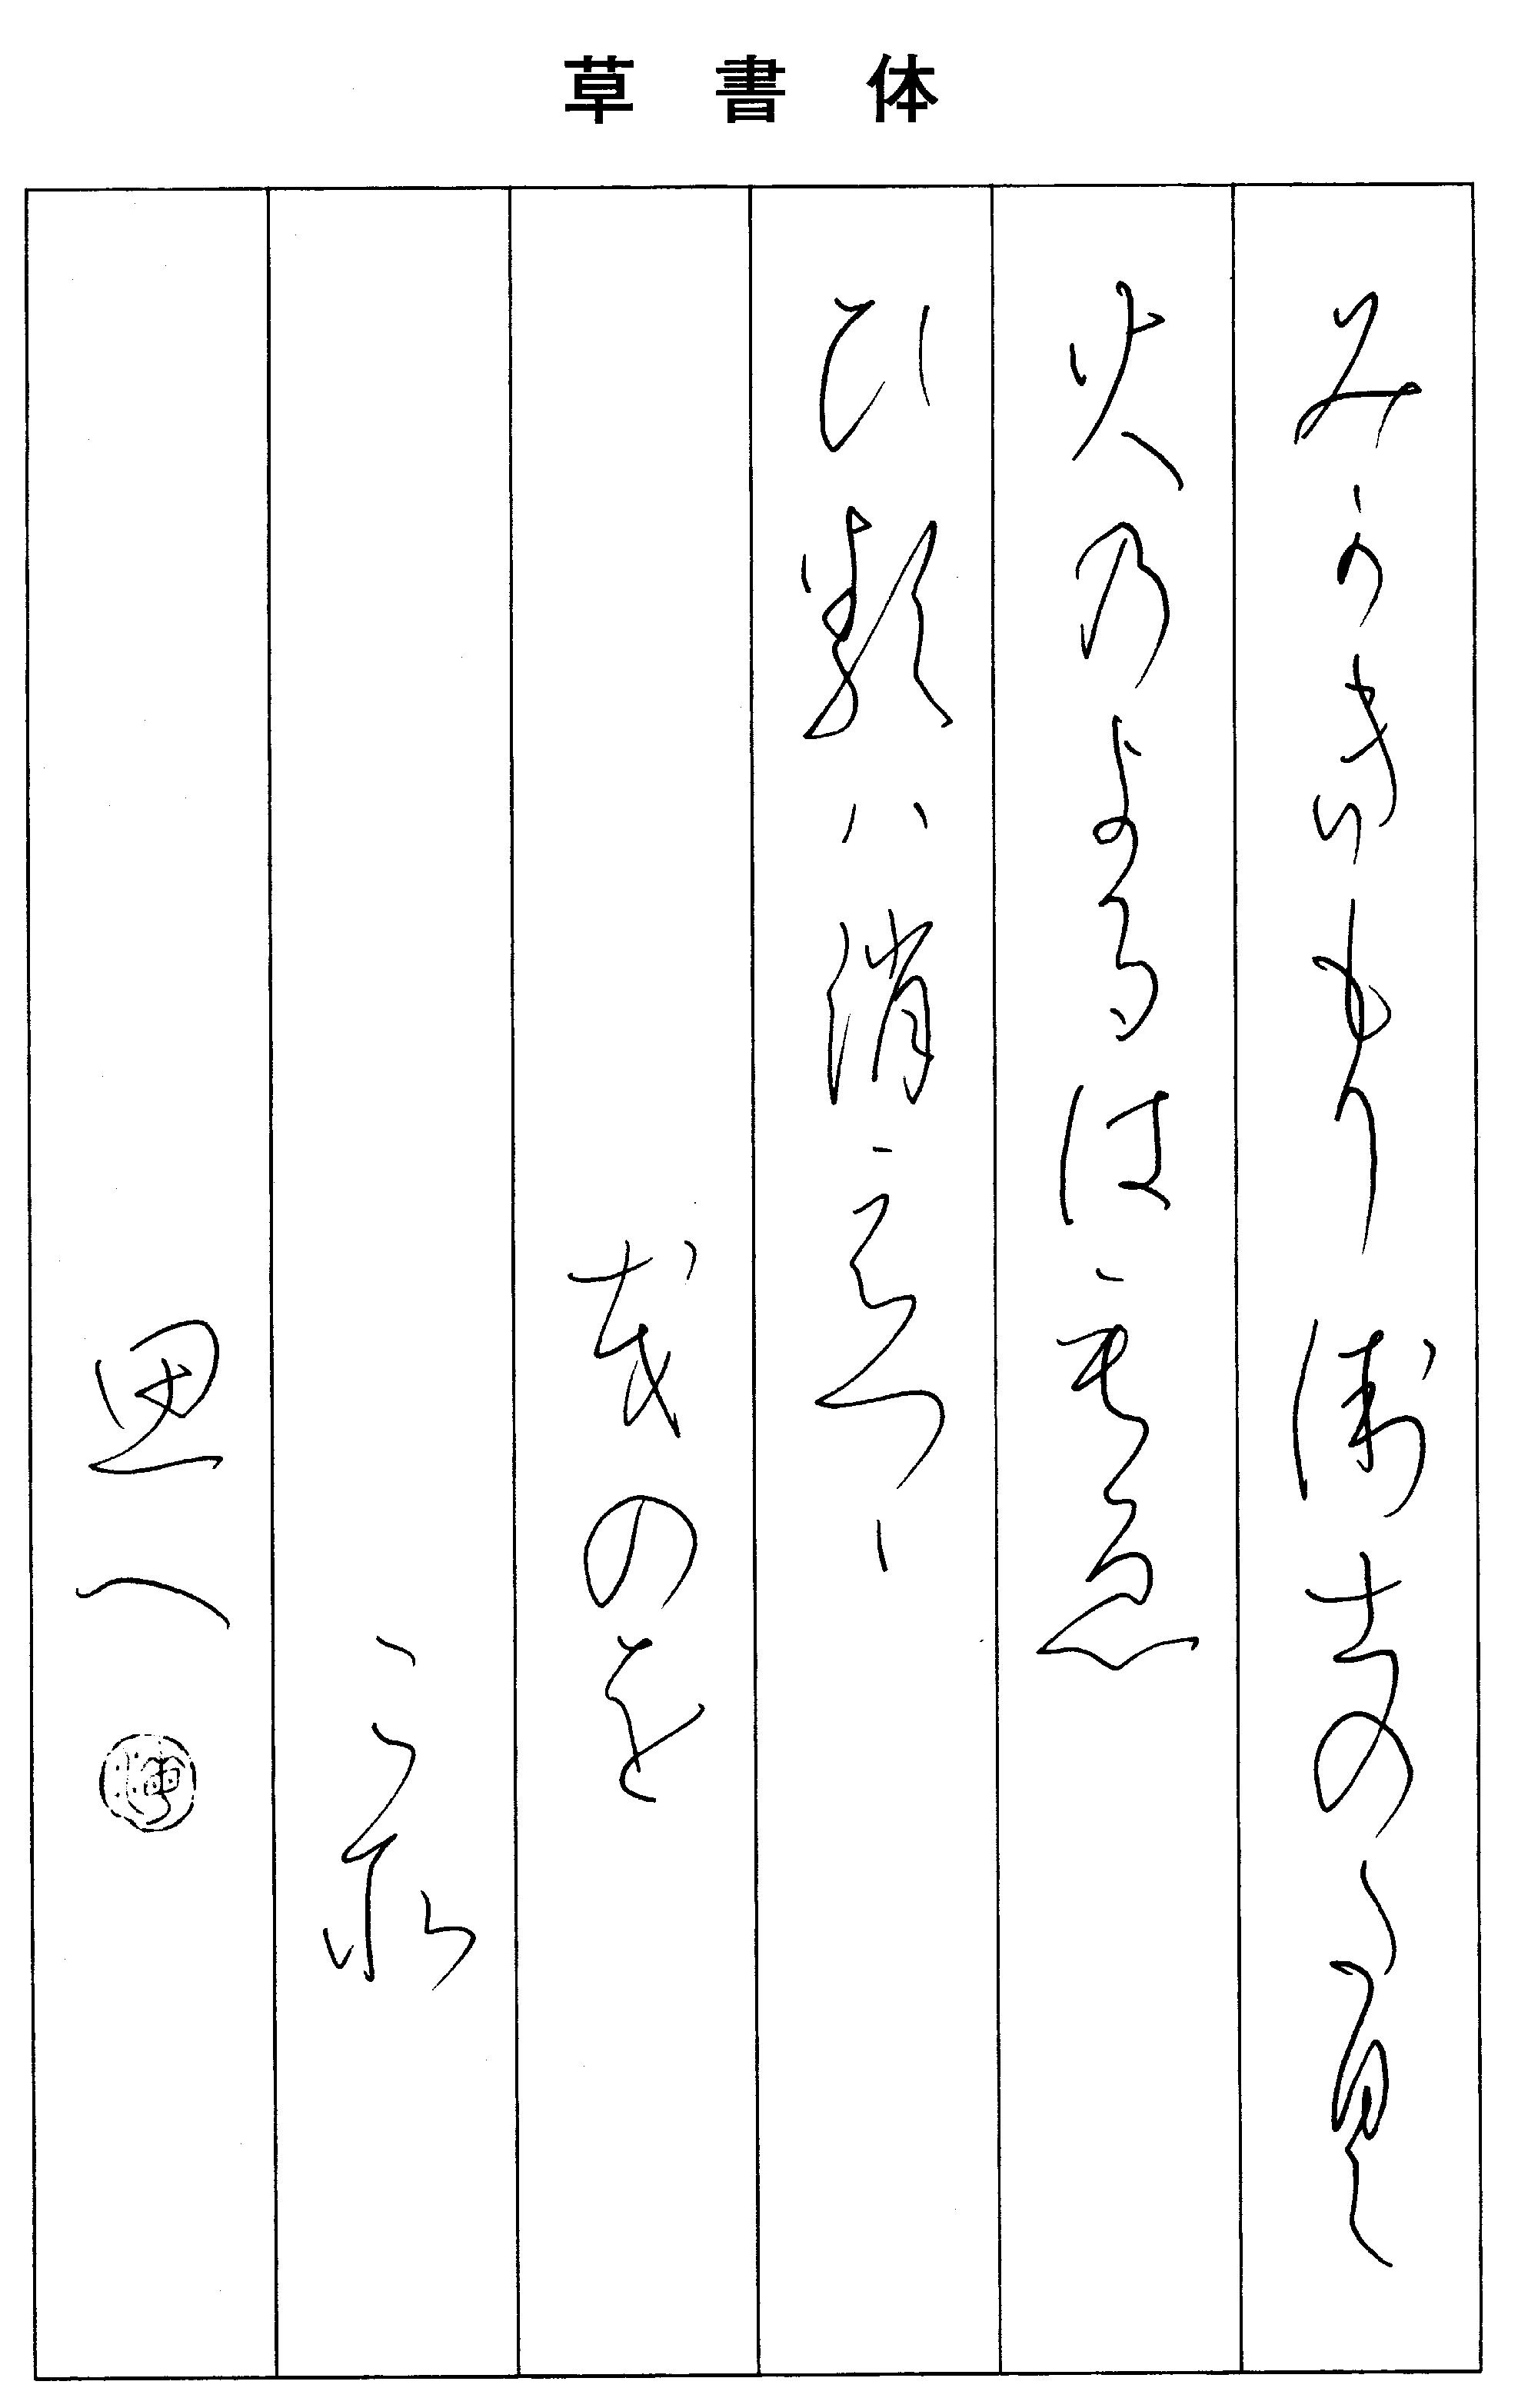 草書体
みかきもり衛士のたく
火乃よるはもえ
ひ類ハ消えつゝ
茂のを
こ所
思へ